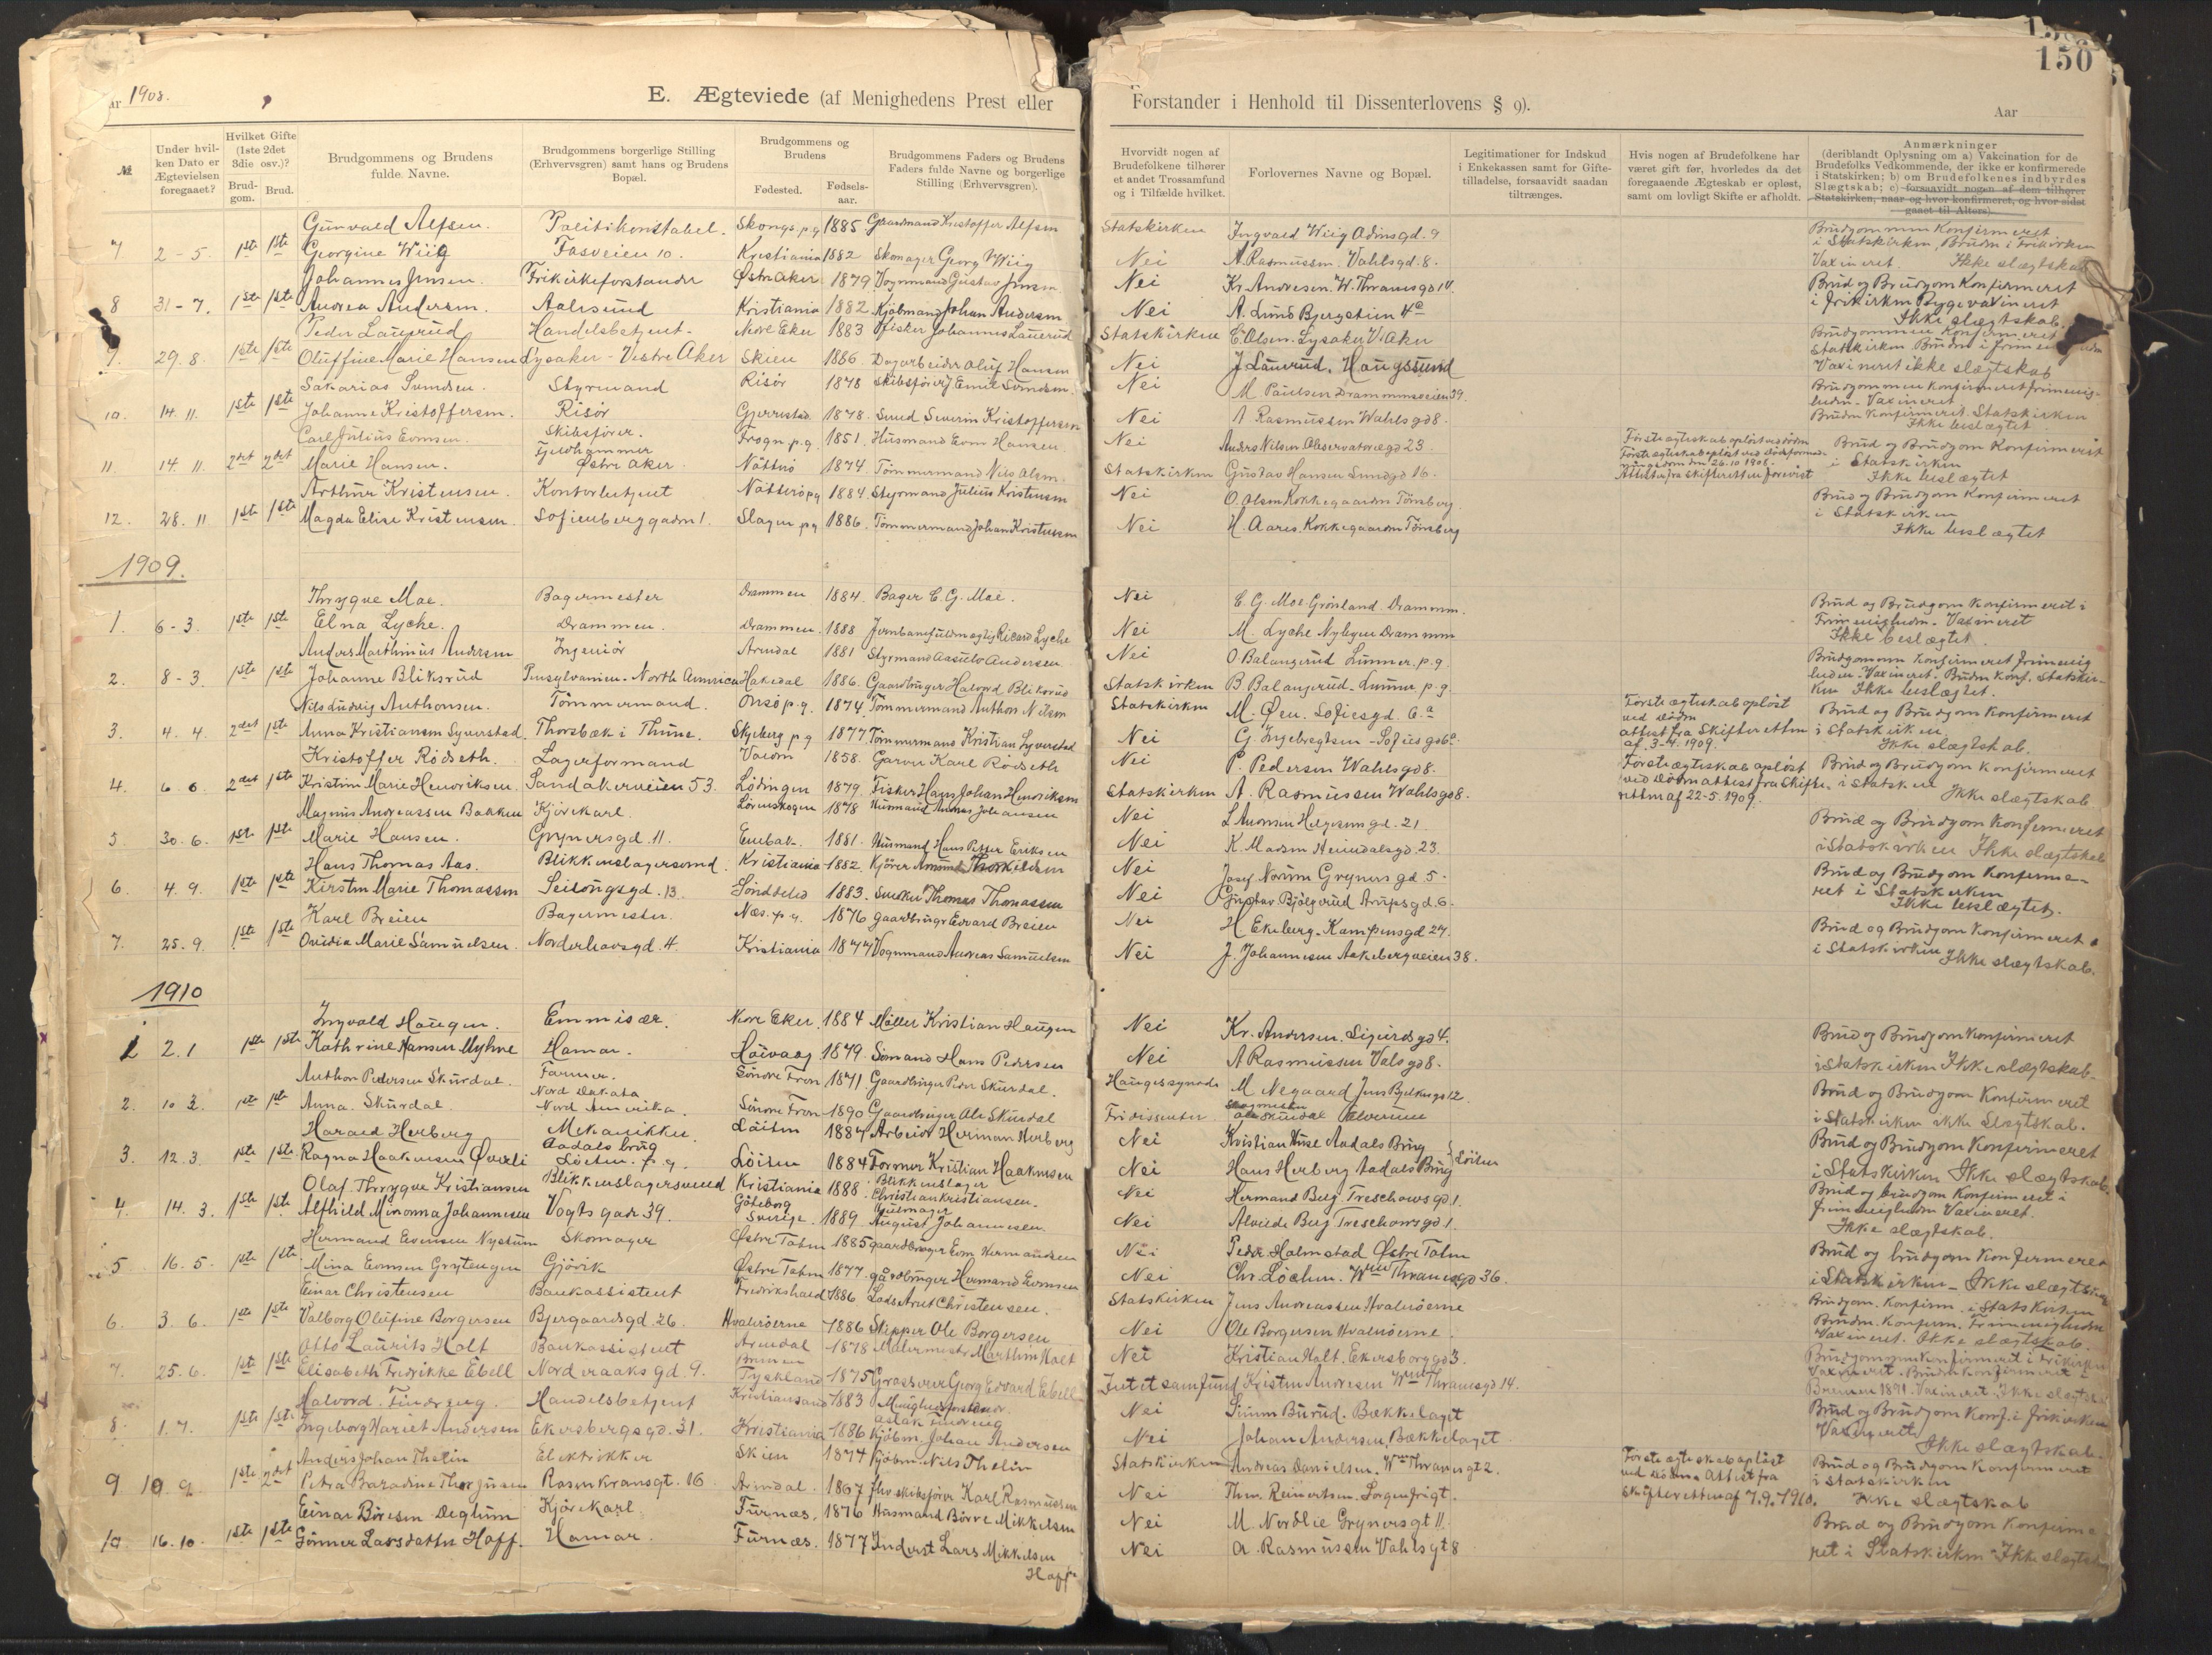 Aar 1908.
E. Ægteviede (af Menighedens Prest eller
№
Under hvil-
ken Dato er
Ægtevielsen
foregaaet?
Hvilket Gifte
(1ste 2det
3die osv.)?
Brud-
gom.
Brud.
Brudgommens og Brudens
fulde Navne.
Brudgommens borgerlige Stilling
(Erhvervsgren) samt hans og Brudens
Bopæl.
Brudgommens og
Brudens
Fødested.
Fødsels-
aar.
Brudgommens Faders og Brudens
Faders fulde Navne og borgerlige
Stilling (Erhvervsgren).
Gunvald Alfsen. Politikonstabel. Skongs. p.g 1885 Gaardmand Kristoffer Alfsen
7 2-5. 1ste 1ste Georgine Wiig Fosveien 10. Kristiania 1882 Skomager Georg Wiig
Johannes Jensen. Frikirkeforstander Østre Aker 1879 Vognmand Gustav Jensen
8 31-7. 1ste 1ste Andrea Andersen. Aalesund Kristiania 1882 Kjøbmand Johan Andersen
Peder Laugerud Handelsbetjent Nedre Eker 1883 Fisker Johannes Lauerud
9. 29.8. 1ste 1ste Oluffine Marie Hansen Lysaker - Vestre Aker Skien 1886 Dagarbeider Oluf Hansen
Sakarias Svendsen. Styrmand Risör 1878 Skibsförer Emil Svendsen.
10. 14. 11. 1ste 1ste Johanne Kristoffersen. Risör Gjerrestad 1878. Smed Severin Kristoffersen
Carl Julius Evensen. Skibsförer. Frogn p.g 1851. Husmand Even Hansen.
Fjeldhammer
11. 14. 11. 2det 2det Marie Hansen. Østre Aker Nötterö 1874. Tömmermand Nils Olsen.
Arthur Kristensen. Kontorbetjent Nötterö p.g 1884. Styrmand Julius Kristensen
12. 28. 11 1ste 1ste Magda Elise Kristensen. Sofienberggaden 1. Slagen p.g 1886. Tömmermand Johan Kristensen
1909.
Thrygve Moe. Bagermester Drammen 1884. Bager C. G. Moe.
1. 6-3. 1ste 1ste Elna Lyche. Drammen. Drammen. 1888 Jernbanefuldmægtig Ricard Lyche
Anders Marthinius Andersen Ingeniör Arendal 1881 Styrmand Aasulv Andersen
2. 8-3. 1ste 1ste Johanne Bliksrud Pensylvanien. North America Hakedal 1886. Gaardbruger Halvord Bliksrud
Nils Ludvig Anthonsen. Tömmermand. Onsö p.g. 1874. Tömmermand Anthon Nilsen
3. 4. 4. 2det 1ste Anna Kristiansen Syverstad. Thorsbæk i Thune. Skjeberg p.g 1877. Tömmermand Kristian Syverstad
Kristoffer Rödseth. Lagerformand 1858. Garver Karl Rödseth
4. 6 6. 2det 1ste Kristin Marie Henriksen. Sandakerveien 53. Lödingen 1879. Fisker Hans Johan Henriksen
Magnus Andreassen Bakken Kjörekarl. Lörenskogen 1878 Husmand Johansen
5 30. 6. 1ste 1ste Marie Hansen. Grynersgd. 11. Enebak. 1881. Husmand Hans Petter Eriksen
Hans Thomas Aas. Blikkenslagersvend. Kristiania 1882. Kjörer Thorkildsen
6. 4. 9. 1ste 1ste Kirsten Marie Thomassen Seildugsgd. 13. Sönddeled 1883. Snedker Thomas Thomassen
Karl Breien Bagermester. Næs. p.g. 1876 gaardbruger Edvard Breien
7. 25. 9. 1ste 1ste Ovidia Marie Samuelsen. Norderhovsgd. 4. Kristiania 1877 Vognmand Andreas Samuelsen
1910
Ingvald Haugen. Emmisær. Nedre Eker. 1884 Möller Kristian Haugen
1 2.1 1ste 1ste Kathrine Hansen Myhre Hamar. Höivaag 1879. Sömand Hans Pedersen
Anthon Pedersen Skurdal. Farmer. Söndre Fron 1871. Gaardbruger Peder Skurdal.
Nord Dakota
2. 10 3. 1ste 1ste Anna. Skurdal. Nord Amerika. Söndre Fron 1890 Gaardbruger Ole Skurdal
Harald Herberg Mekanikker. Löiten 1884 Arbeider Herman Herberg
Aadals brug
3. 12. 3. 1ste 1ste Ragna Haakensen Qverli Löiten. p.g. Löiten 1884 Former Kristian Haakensen
Olaf. Thrygve Kristiansen Blikkenslagersvend Kristiania 1888. Blikkenslager Christian Kristiansen.
4. 14. 3. 1ste 1ste Alfhild Minonna Johannesen Vogts gade 39. Göteborg Sverige. 1889 August Johannesen.
Hermand Evensen Nystuen Skomager Østre Toten 1885 gaardbruger Even Hermandsen
5 16. 5. 1ste 1ste Mina Evensen Grytengen Gjövik Østre Toten 1877. gårdbruger Hermand Evensen
Einar Christensen Bankassistent Fredrikshald 1886 Lods Arnt Christensen.
6. 3. 6. 1ste 1ste Valborg Olufine Borgersen Bjergaardsgd. 26. Hvalröerne 1886 Skipper Ole Borgersen
Otto Laurits Holt Bankassistent Arendal 1878 Malermester Marthin Holt
7. 25. 6. 1ste 1ste Elisabeth Fredrikke Ebell Nordraaks gd. 9. Bremen Tyskland 1875 Grosserer Georg Edvard Ebell
Halvord. Tindreng. Handelsbetjent Kristiansand 1883 Menighedsforstander. Aslak Tindreng
8. 1. 7. 1ste 1ste Ingeborg Hariet Andersen Ekersbergsgd. 31. Kristiania 1886 Kjöbm. Johan Andersen
Anders Johan Thelin Elektrikker Skien 1874 Kjöbm. Nils Thelin
9 10 9. 1ste 2det Petra Baradine Thorjusen Rosenkransgt. 16 Arendal. 1867 fhv skibsförer Karl Rasmussen
Einar Börresen Deglum Kjörekarl Furnæs. 1876 Husmand Börre Mikkelsen
10 16.10. 1ste 1ste Gönner Larsdatter Hoff. Hamar. Furnæs. 1877 Inderst Lars Mikkelsen
Hoff.
150
Forstander i Henhold til Dissenterlovens § 9).
Aar
Hvorvidt nogen af
Brudefolkene tilhører
et andet Trossamfund
og i Tilfælde hvilket.
Forlovernes Navne og Bopæl.
Legitimationer for Indskud
i Enkekassen samt for Gifte-
tilladelse, forsaavidt saadan
tiltrænges.
Hvis nogen af Brudefolkene har
været gift før, hvorledes da det
foregaaende Ægteskab er opløst,
samt om lovligt Skifte er afholdt.
Anmærkninger
(deriblandt Oplysning om a) Vakcination for de
Brudefolks Vedkommende, der ikke er konfirmerede
i Statskirken; b) om Brudefolkenes indbyrdes
Slægtskab; c) forsaavidt nogen af dem tilhører
Statskirken, naar og hvor konfirmeret, og hvor sidst
gaaet til Alters).
Statskirken Ingvald Wiig Odinsgd. 9 Brudgommen Konfirmeret
i Statskirken, Bruden i Frikirken
Nei A. Rasmussen. Vahlsgd. 8. Vaxineret. Ikke slægtskab
Nei Kr. Andresen. W. Thranesgd 14. Brud og Brudgom Konfirmeret
Nei A. Lund Bjergstien 4a i frikirken Begge vaxineret
Ikke slægtskab.
Statskirken C. Olsen. Lysaker V. Aker Brudgommen Konfirmeret
Statskirken Bruden i
Nei J. Lauerud. Haugssund Vaxineret ikke slægtskab
Nei M. Paulsen Drammensveien 39. Brudgommen Konfirmeret frimenig-
heden. Vaxineret
Nei A Rasmussen Wahlsgd 8. Bruden Konfirmeret. Statskirken
Ikke beslægtet
Nei Anders Nilsen Observatoriegd 23 Förste ægteskab oplöst ved döden Brud og Brudgom Konfirmeret
Statskirken Gustav Hansen Lundgd 16. i Statskirken
Attester fra skifteretten forevist Ikke beslægtet
Nei O. Olsen Kokkegaarden Tönsberg. Brud og Brudgom Konfirmeret
i Statskirken
Nei H. Aares. Kokkegaarden Tönsberg Ikke beslægtet
Nei C. G. Moe. Grönland. Drammen. Brud og Brudgom Konfirmeret i
Frimenigheden. Vaxineret
Nei M. Lyche Nybyen Drammen Ikke beslægtet.
Nei O Balangerud Lunner. p.g. Brudgommen Konfirmeret frimenig
heden. Vaxineret. Bruden Konf. Statskir-
Statskirken B Balangerud. Lunner p.g. ken Ikke beslægtet.
Statskirken M. Øen. Sofiesgd. 6.a Förste ægteskab oplöst
ved döden Brud og Brudgom Konfirmeret
Nei G. Ingebregtsen - Sofiesgd 6a. attest fra Skifteretten i Statskirken.
af. 3-4. 1909. Ikke slægtskab.
Nei P. Pedersen Wahlsgd 8. Förste ægteskab oplöst Brud og Brudgom Konfirmeret
ved döden attest fra Skifte- i Statskirken
Statskirken A. Rasmussen Wahlsgd 8. retten af 22-5. 1909. Ikke slægtskab
Nei L Aronsen Helgesensgd. 21 Brud og Brudgom Konfirmeret
Nei K. Madsen Heimdalsgd. 23. i Statskirken Ikke slægtskab
Nei Josef Noren Gryners gd 5. Brud og Brudgom Konfirme-
ret i Statskirken
Nei Gustav Bjölgerud Arupsgd. 6. Ikke beslægtet.
Nei H. Ekeberg. Kampensgd 27. Brud og Brudgom Konfirmeret
Nei J. Johannesen Aakebergveien 38. i Statskirken Ikke slægtskab.
Nei Kr. Andersen. Sigurds gd 4. Brud og Brudgom Konfirmeret
Nei A Rasmussen Vals gd 8. i Statskirken Ikke slægtskab.
Haugessynode M. Negaard Jens Bjelkesgd 12. Brud og Brudgom Konfirmeret
Fridissenter Ole Skurdal Elverum i Statskirken ikke Slægtskab.
Nei Kristian Huse Aadals Brug Brud og Brudgom Konfirmeret
Nei Hans Herberg Aadals Brug } Löiten i Statskirken Ikke slægtskab.
Nei Hermand Berg Treschows gd 1. Brud og brudgom Konfirmeret i
frimenigheden Vaxineret.
Nei Alvilde Berg Treschowsgd 1. Ikke slægtskab.
Nei Peder Halmstad Østre Toten Brud og brudgom Konfirmeret
Nei Chr. Löchen. Wm Thranesgd 36. i Statskirken - Ikke slægtskab
Statskirken Jens Andreassen Hvalröerne Brudgom. Konfirm. i Statskirken
Bruden. Konfirm. Frimenigheden
Nei Ole Borgersen Hvalröerne. Vaxineret. Ikke slægtskab.
Nei Kristian Holt. Ekersborggd 3. Brudgommen Konfirmeret i Frikirken
Vaxineret. Bruden Konfirmeret i
Intet samfund Kristen Andresen Wm Thranesgd 14. Bremen 1891. Vaxineret. Ikke slægtskab
Nei Simen Burud. Bækkelaget Brud og Brudgom Konf. i frikirken
Vaxineret
Nei Johan Andersen Bækkelaget Ikke slægtskab.
Statskirken Andreas Danielsen. Wm Thranesgt 2. Förste ægteskab oplöst Brud og Brudgom Konfirmeret
ved döden Attest fra i Statskirken
Nei Thm. Reinertsen. Sorgenfrigt. Skifteretten af 7.9. 1910. Ikke slægtskab
Nei M. Nordlie Grynersgt 11. Brud og Brudgom Konfirme
Nei A. Rasmussen Vahlsgt 8 ret i Statskirken Ikke slægtskab